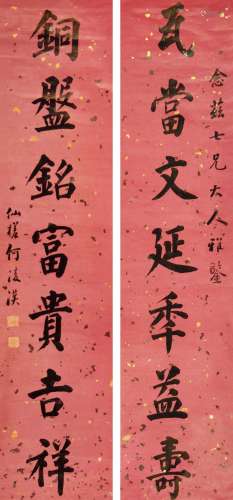 念茲七兄大人雅鑒
瓦當文延年益壽
銅盤銘富貴吉祥
仙槎何凌漢